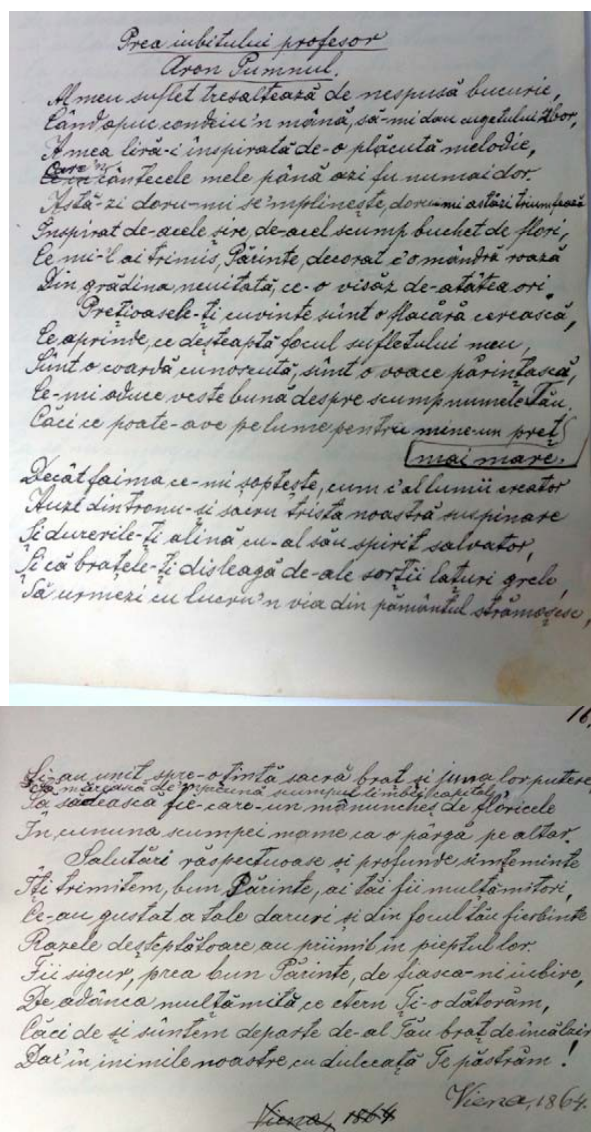 Prea iubitului profesor
Aron Pumnul.
Al meu suflet tresaltează de nespusă bucurie,
Când apuc condeiu'n mână, să-mi dau cugetului zbor,
A mea liră-i inspirată de-o plăcută melodie,
Care'n
cântecele mele până azi fu numai dor.
Astă-zi doru-mi se'mplinește, doru-mi astăzi triumfează
Inspirat de-acele șire, de-acel scump buchet de flori,
Ce mi-'l ai trimis, Părinte, decorat c'o mândră roază
Din grădina neuitată, ce-o visăz de-atâtea ori.
Prețioasele-ți cuvinte sûnt o flacără cerească,
Ce aprinde, ce deșteaptă focul sufletului meu,
Sûnt o coardă cunoscută, sûnt o voace părințască,
Ce-mi aduce veste bună despre scump numele Tău.
Căci ce poate-ave pe lume pentru mine-un preț
mai mare.
Decât faima ce-mi șoptește, cum c'al lumii creator
Auzi din tronu-și sacru trista noastră suspinare
Și durerile-ți alină cu-al său spirit salvator,
Și că brațele-ți disleagă de-ale sorții lațuri grele,
Să urmezi cu lucru'n via din pământul strămoșesc,
16.
Și-au unit spre-o țintă sacră braț și juna lor putere
scumpul limbei capital
Să sădească fie-care-un mănuncheș de floricele
În cununa scumpei mame ca o pârgă pe altar.
Salutări răspectuoase și profunde simțeminte
Iți trimitem, bun Părinte, ai tăi fii mulțămitori,
Ce-au gustat a tale daruri și din focul tău fierbinte
Razele deșteptătoare au priimit în pieptul lor.
Fii sigur, prea bun Părinte, de fiasca-ni iubire,
De adânca mulțămită ce etern Ți-o dătorăm,
Căci de și sûntem departe de-al Tău braț de
Dar' în inimile noastre cu dulceață Te păstrăm!
Viena, 1864.
Viena, 1864